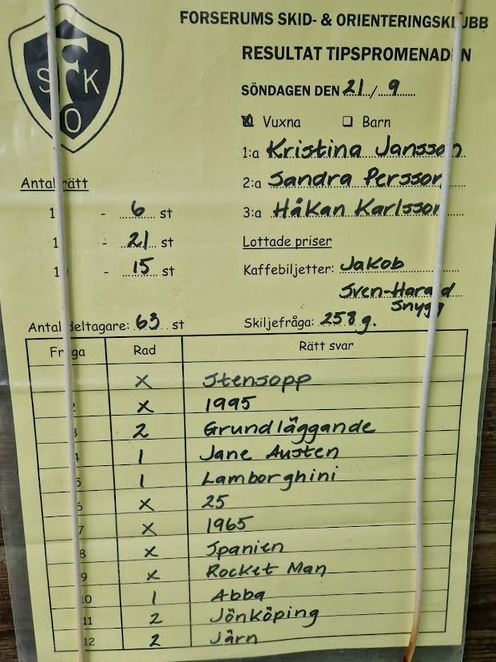 FORSERUMS SKID- & ORIENTERINGSKLUBB
F
S K
O
RESULTAT TIPSPROMENADEN
SÖNDAGEN DEN 21/9
Vuxna Barn
1:a Kristina Jansson
2:a Sandra Persson
3:a Håkan Karlsson
Antal rätt
1 - 6 st
1 - 21 st
1 - 15 st
Lottade priser
Kaffebiljetter: Jakob
Sven-Harald
Snygg
Antal deltagare: 63 st Skiljefråga: 258 g.
Fråga Rad Rätt svar
X Stensopp
2 X 1995
3 2 Grundläggande
4 1 Jane Austen
5 1 Lamborghini
6 X 25
7 X 1965
8 X Spanien
9 X Rocket Man
10 1 Abba
11 2 Jönköping
12 2 Järn